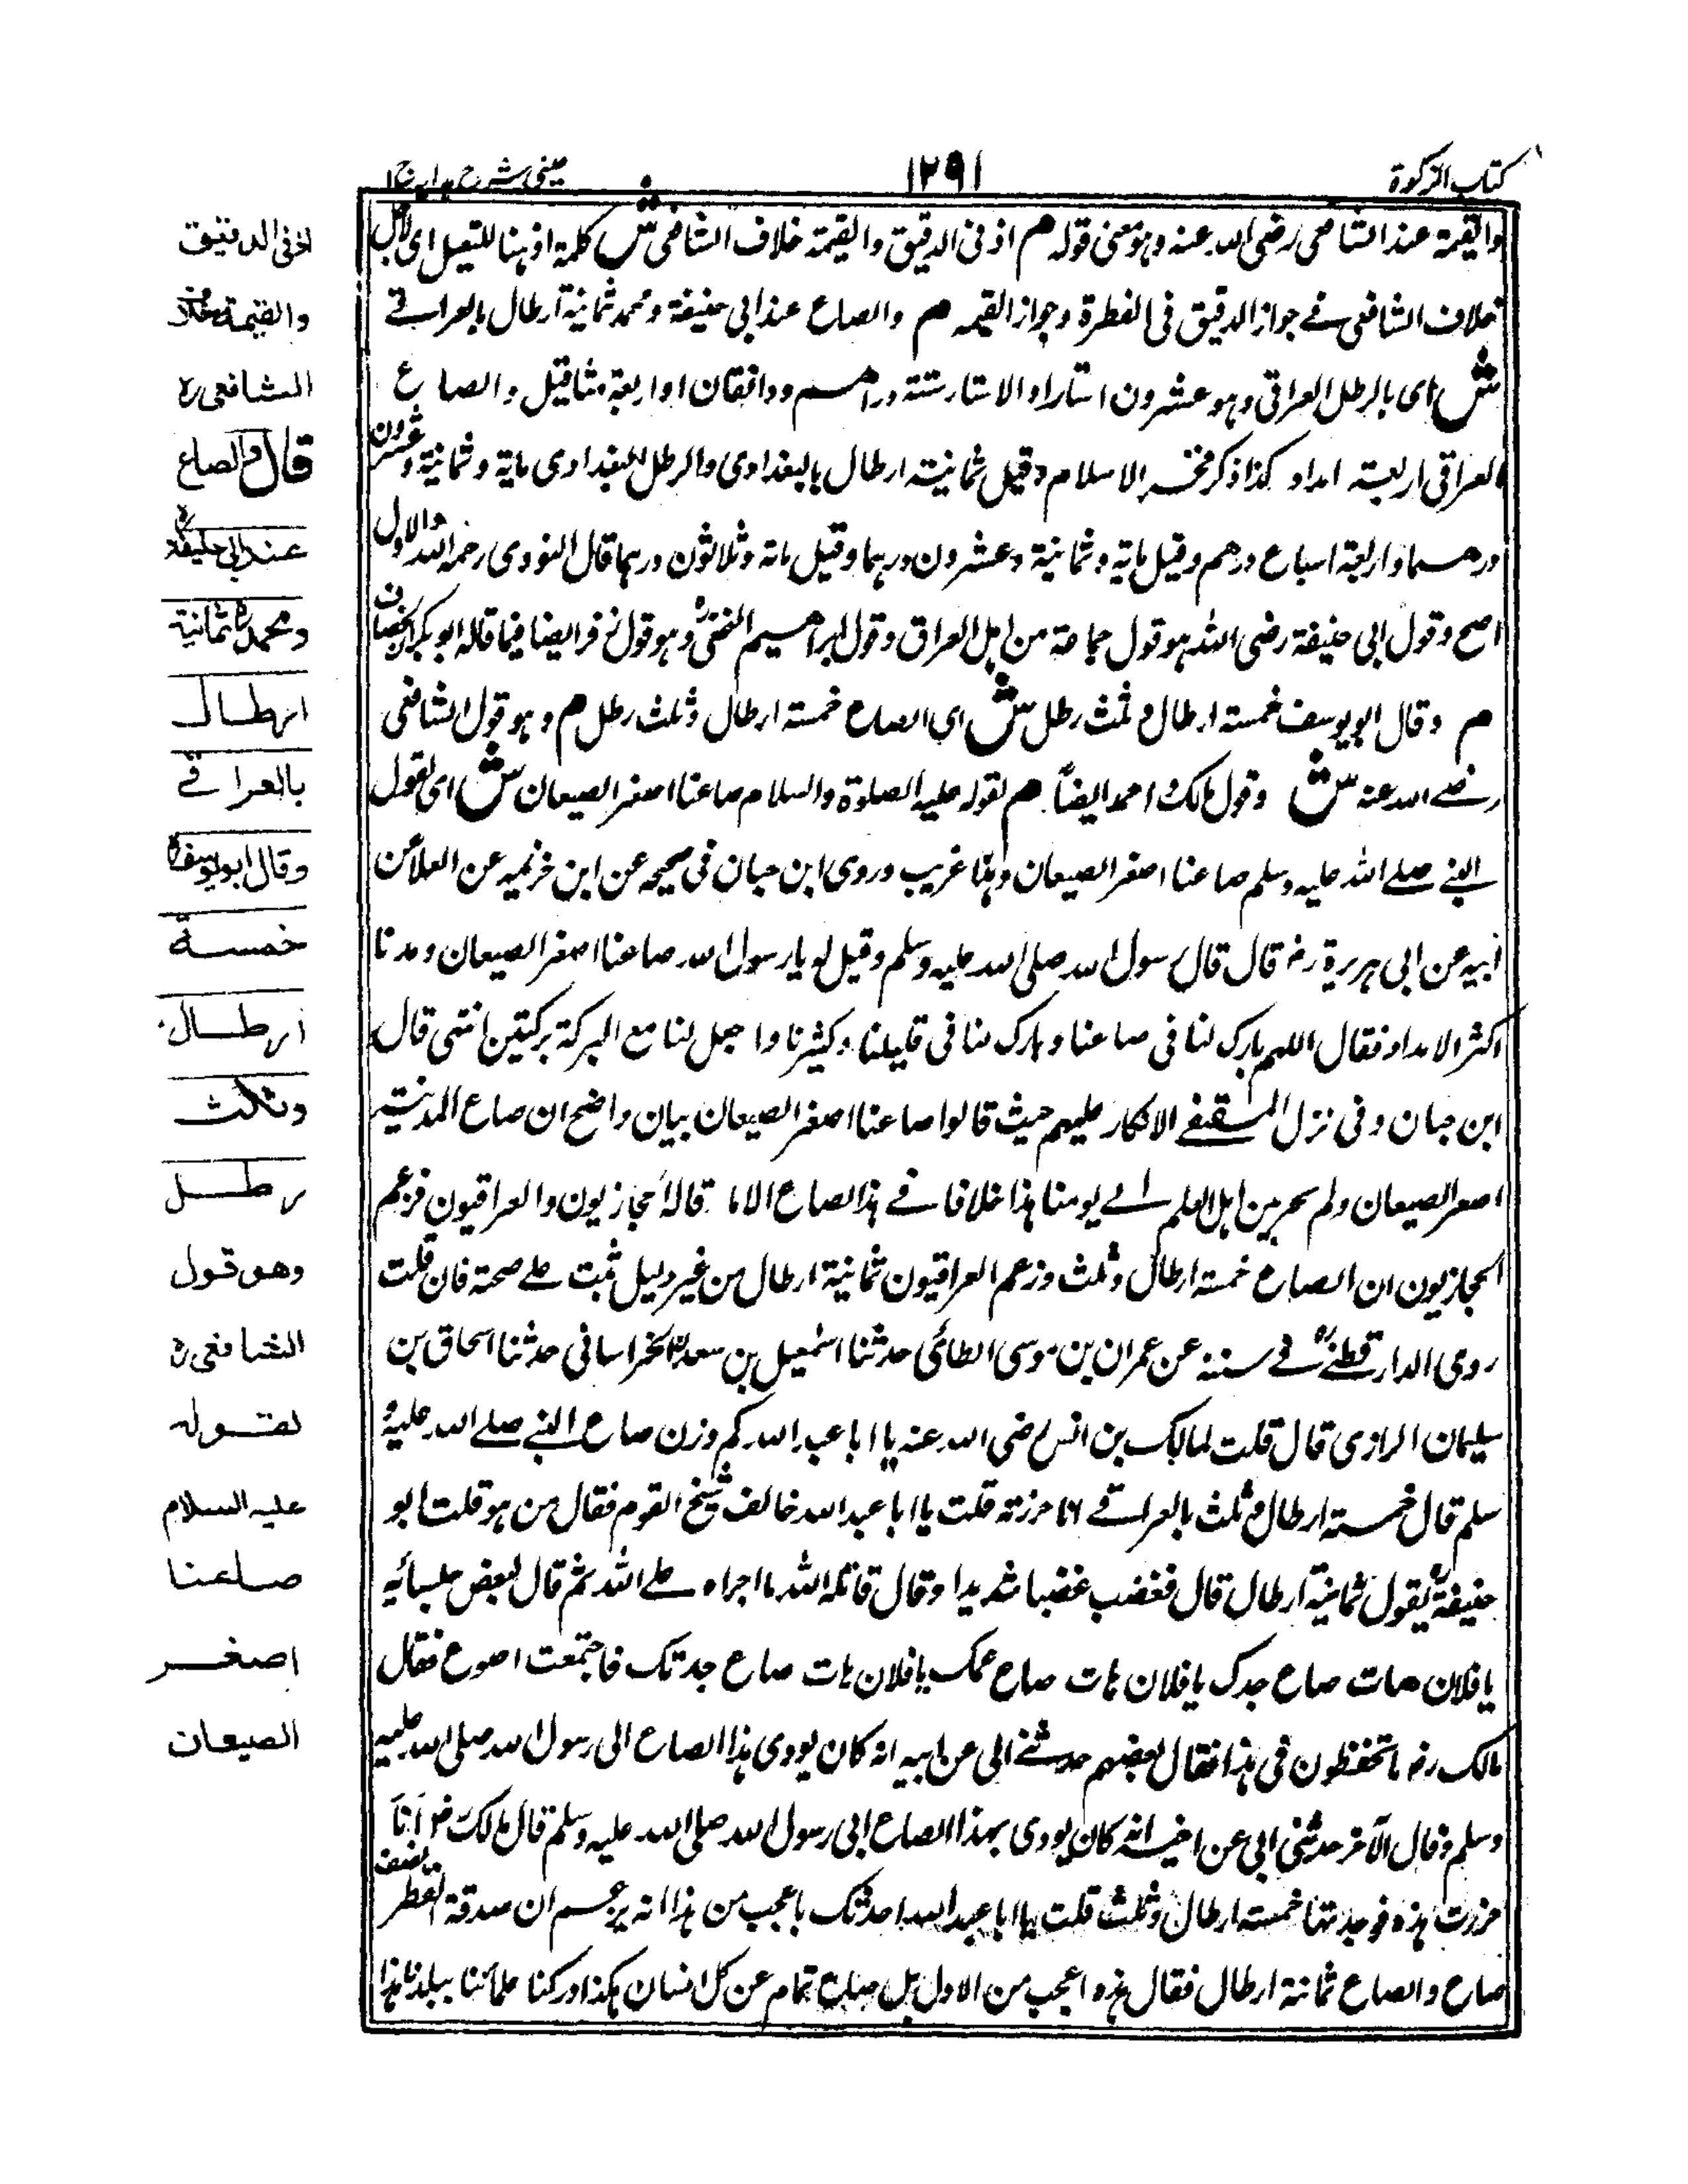 كتاب الزكوة
١٢٩١
عينى شرح هدايه ج١
والقيمة عند الشافعى رضى الله عنه وهو معنى قوله م اذ فى الدقيق والقيمة خلاف الشافعى ش كلمة اذ هنا للتعليل اى لاجل
خلاف الشافعى فى جواز الدقيق فى الفطرة وجواز القيمه م والصاع عند ابى حنيفة ومحمد ثمانية ارطال بالعراقى
ش اى بالرطل العراقى وهو عشرون استارا والاستار ستة دراهم ودانقان او اربعة مثاقيل والصاع
العراقى اربعة امداد كذا ذكر فخر الاسلام وقيل ثمانية ارطال بالبغدادى والرطل البغدادى ماية وثمانية وعشرون
درهما واربعة اسباع درهم وقيل ماية وثمانية وعشرون درهما وقيل ماية وثلاثون درهما قال النووى رحمه الله والاول
اصح وقول ابى حنيفة رضى الله هو قول جماعة من اهل العراق وقول ابراهيم النخعى وهو قول زفر ايضا فيما قاله ابو بكر
م وقال ابو يوسف خمسة ارطال وثلث رطل ش اى الصاع خمسة ارطال وثلث رطل م وهو قول الشافعى
رضى الله عنه ش وقول مالك احمد ايضاً م لقوله عليه الصلوة والسلام صاعنا اصغر الصيعان ش اى لقول
النبى صلى الله عليه وسلم صاعنا اصغر الصيعان وهذا غريب وروى ابن حبان فى صحيحه عن ابن خزيمه عن العلاء عن
ابيه عن ابى هريرة رضہ قال قال رسول الله صلى الله عليه وسلم وقيل له يا رسول الله صاعنا اصغر الصيعان ومدنا
اكثر الامداد فقال اللهم بارك لنا فى صاعنا وبارك لنا فى قليلنا وكثيرنا واجعل لنا مع البركة بركتين انتهى قال
ابن حبان وفى الانكار عليهم حيث قالوا صاعنا اصغر الصيعان بيان واضح ان صاع المدينة
اصغر الصيعان ولم بين اهل العلم الى يومنا هذا خلافا فى هذا الصاع الا ما قاله الحجازيون والعراقيون فزعم
الحجازيون ان الصاع خمسة ارطال وثلث وزعم العراقيون ثمانية ارطال من غير دليل ثبت على صحته فان قلت
روى الدارقطنى فى سننه عن عمران بن موسى الطائى حدثنا اسمعيل بن سعد الخراسانى حدثنا اسحاق بن
سليمان الرازى قال قلت لمالك بن انس رضى الله عنه يا ابا عبد الله كم وزن صاع النبى صلى الله عليه و
سلم قال خمسة ارطال وثلث بالعراقى انا حزرته قلت يا ابا عبد الله خالف شيخ القوم فقال من هو قلت ابو
حنيفة يقول ثمانية ارطال قال فغضب غضبا شديدا وقال قاتله الله ما اجراه على الله ثم قال لبعض جلسائه
يا فلان هات صاع جدك يا فلان هات صاع عمك يا فلان هات صاع جدتك فاجتمعت اصوع فقال
مالك رضہ ما تحفظون فى هذا فقال بعضهم حدثنى ابى عن ابيه انه كان يودى بهذا الصاع الى رسول الله صلى الله عليه
وسلم وقال الآخر حدثنى ابى عن اخيه انه كان يودى بهذا الصاع الى رسول الله صلى الله عليه وسلم قال مالك رضہ انا
حزرت هذه فوجدتها خمسة ارطال وثلث قلت يا ابا عبد الله احدثك باعجب من هذا انه يزعم ان صدقة الفطر نصف
صاع والصاع ثمانية ارطال فقال هذه اعجب من الاول بل صاع تمام عن كل انسان هكذا ادركنا علمائنا ببلدنا هذا
اذ فى الدقيق
والقيمة خلاف
الشافعى ره
قال والصاع
عند ابى حنيفة ره
ومحمد ره ثمانية
ارطال
بالعراقى
وقال ابو يوسف ره
خمسة
ارطال
وثلث
رطل
وهو قول
الشافعى ره
لقوله
عليه السلام
صاعنا
اصغر
الصيعان